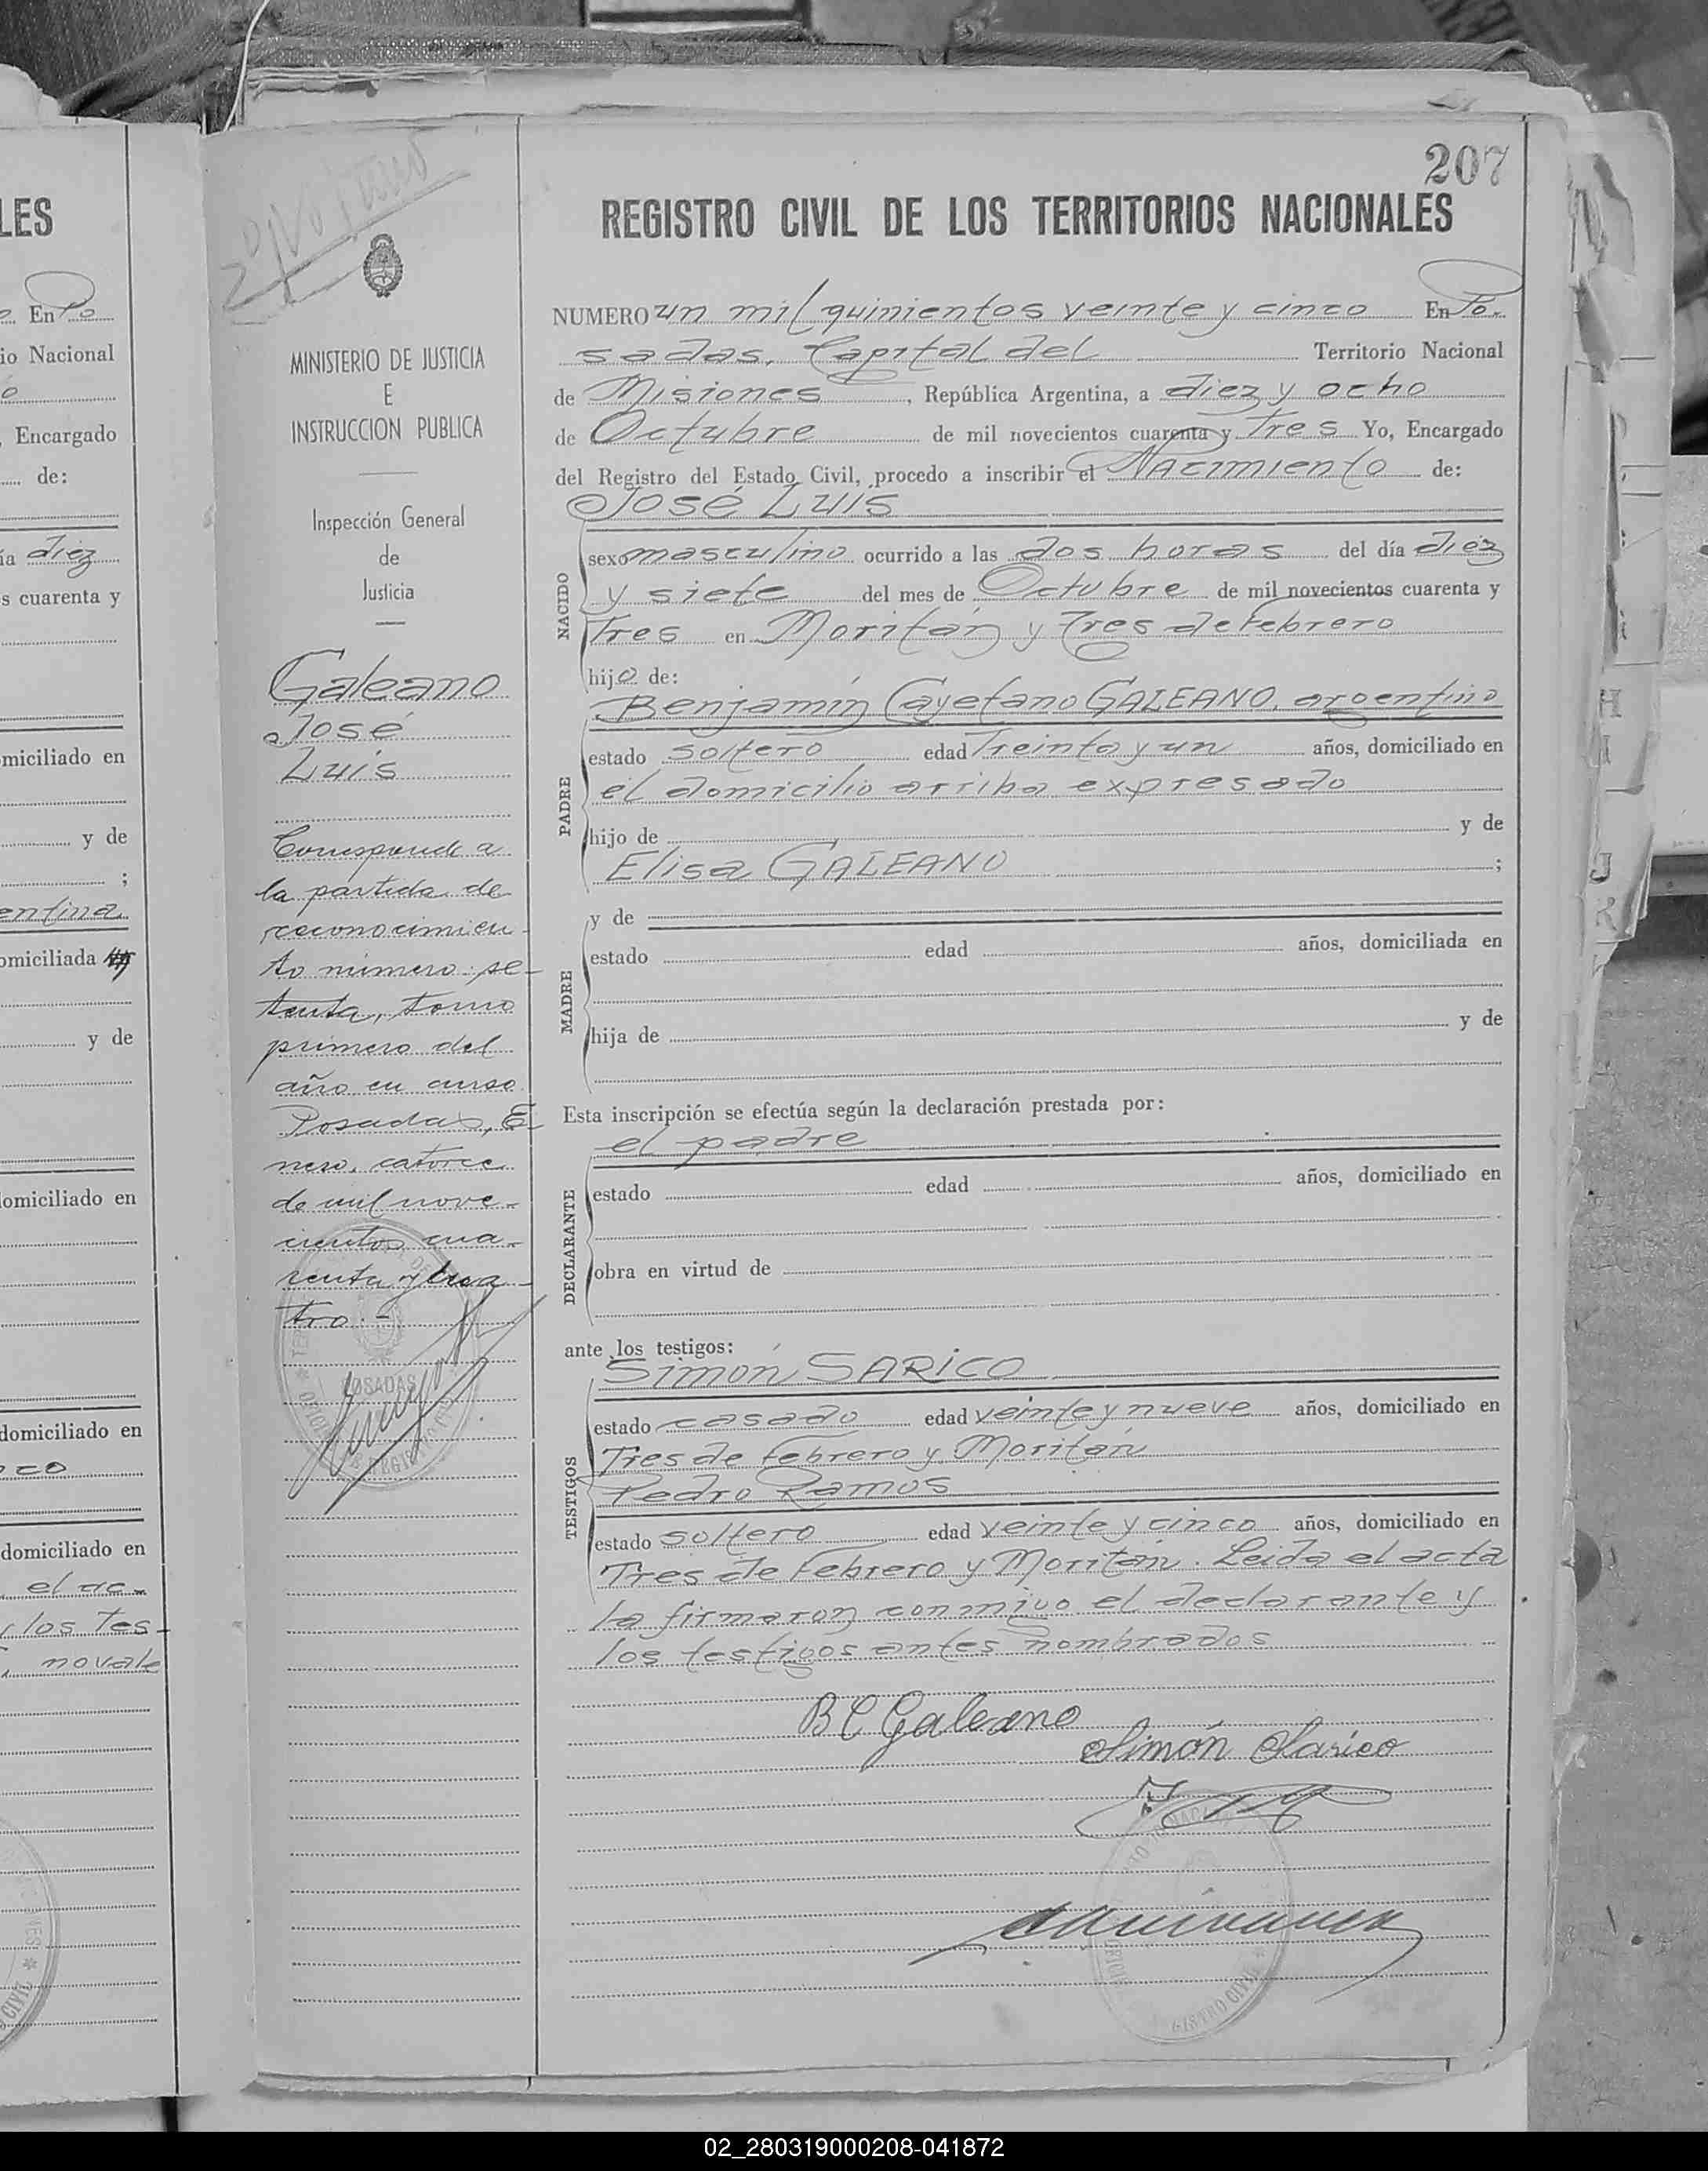 LES
En Po
io Nacional
o
, Encargado
de:
ía diez
s cuarenta y
miciliado en
y de
;
entina
omiciliada
y de
omiciliado en
domiciliado en
co
domiciliado en
el ac-
los Tes-
novale
MINISTERIO DE JUSTICIA
E
INSTRUCCION PUBLICA
Inspección General
de
Justicia
Galeano
José
Luis
Corresponde a
la partida de
reconocimien-
to número se-
tenta, tomo
primero del
año en curso
Posadas, E-
nero, catorce
de mil nove-
cientos cua-
renta y cua-
tro.-
POSADAS
207
REGISTRO CIVIL DE LOS TERRITORIOS NACIONALES
NUMERO un mil quinientos veinte y cinco En Po-
sadas, Capital del Territorio Nacional
de Misiones, República Argentina, a diez y ocho
de Octubre de mil novecientos cuarenta y Tres Yo, Encargado
del Registro del Estado Civil, procedo a inscribir el Nacimiento de:
José Luis
NACIDO
sexo masculino ocurrido a las dos horas del día diez
y siete del mes de Octubre de mil novecientos cuarenta y
Tres en Moritán y Tres de Febrero
hijo de:
Benjamín Cayetano GALEANO, argentino
PADRE
estado soltero edad Treinta y un años, domiciliado en
el domicilio arriba expresado
hijo de y de
Elisa GALEANO ;
MADRE
y de
estado edad años, domiciliada en
hija de y de
Esta inscripción se efectúa según la declaración prestada por:
el padre
DECLARANTE
estado edad años, domiciliado en
obra en virtud de
ante los testigos:
Simón SARICO
TESTIGOS
estado casado edad veinte y nueve años, domiciliado en
Tres de Febrero y Moritán
Pedro Ramos
estado soltero edad veinte y cinco años, domiciliado en
Tres de Febrero y Moritán. Leida el acta
la firmaron conmigo el declarante y
los testigos antes nombrados
B C Galeano
Simón Sarico
02_280319000208-041872